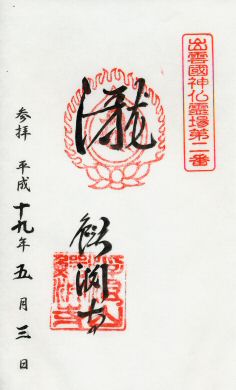 出雲國神仏霊場第二番
瀧
鰐淵寺
参拝 平成十九年五月三日